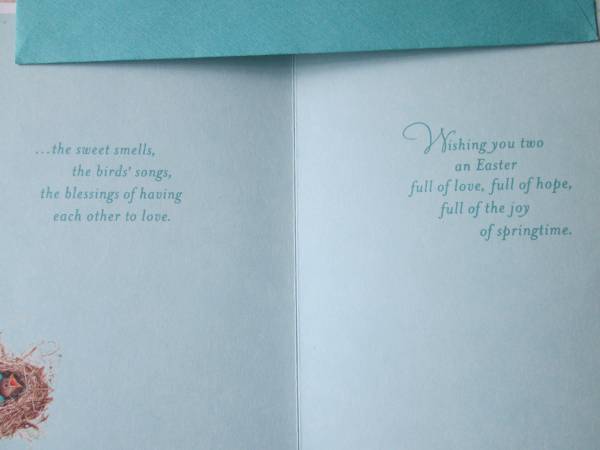 ...the sweet smells,
the birds' songs,
the blessings of having
each other to love.
Wishing you two
an Easter
full of love, full of hope,
full of the joy
of springtime.